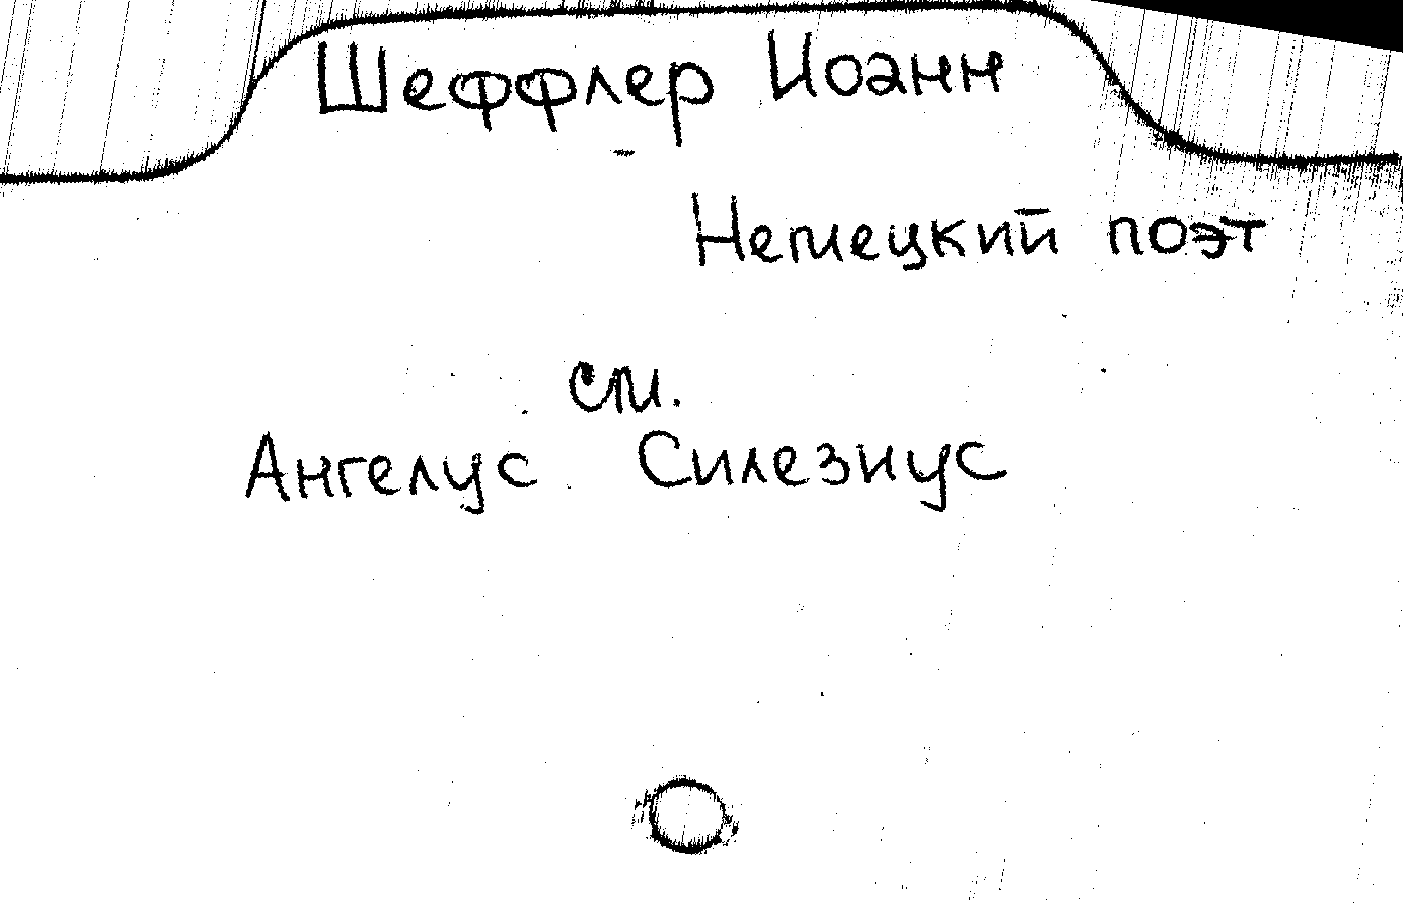 Шеффлер Иоанн
Немецкий поэт
см.
Ангелус Силезиус